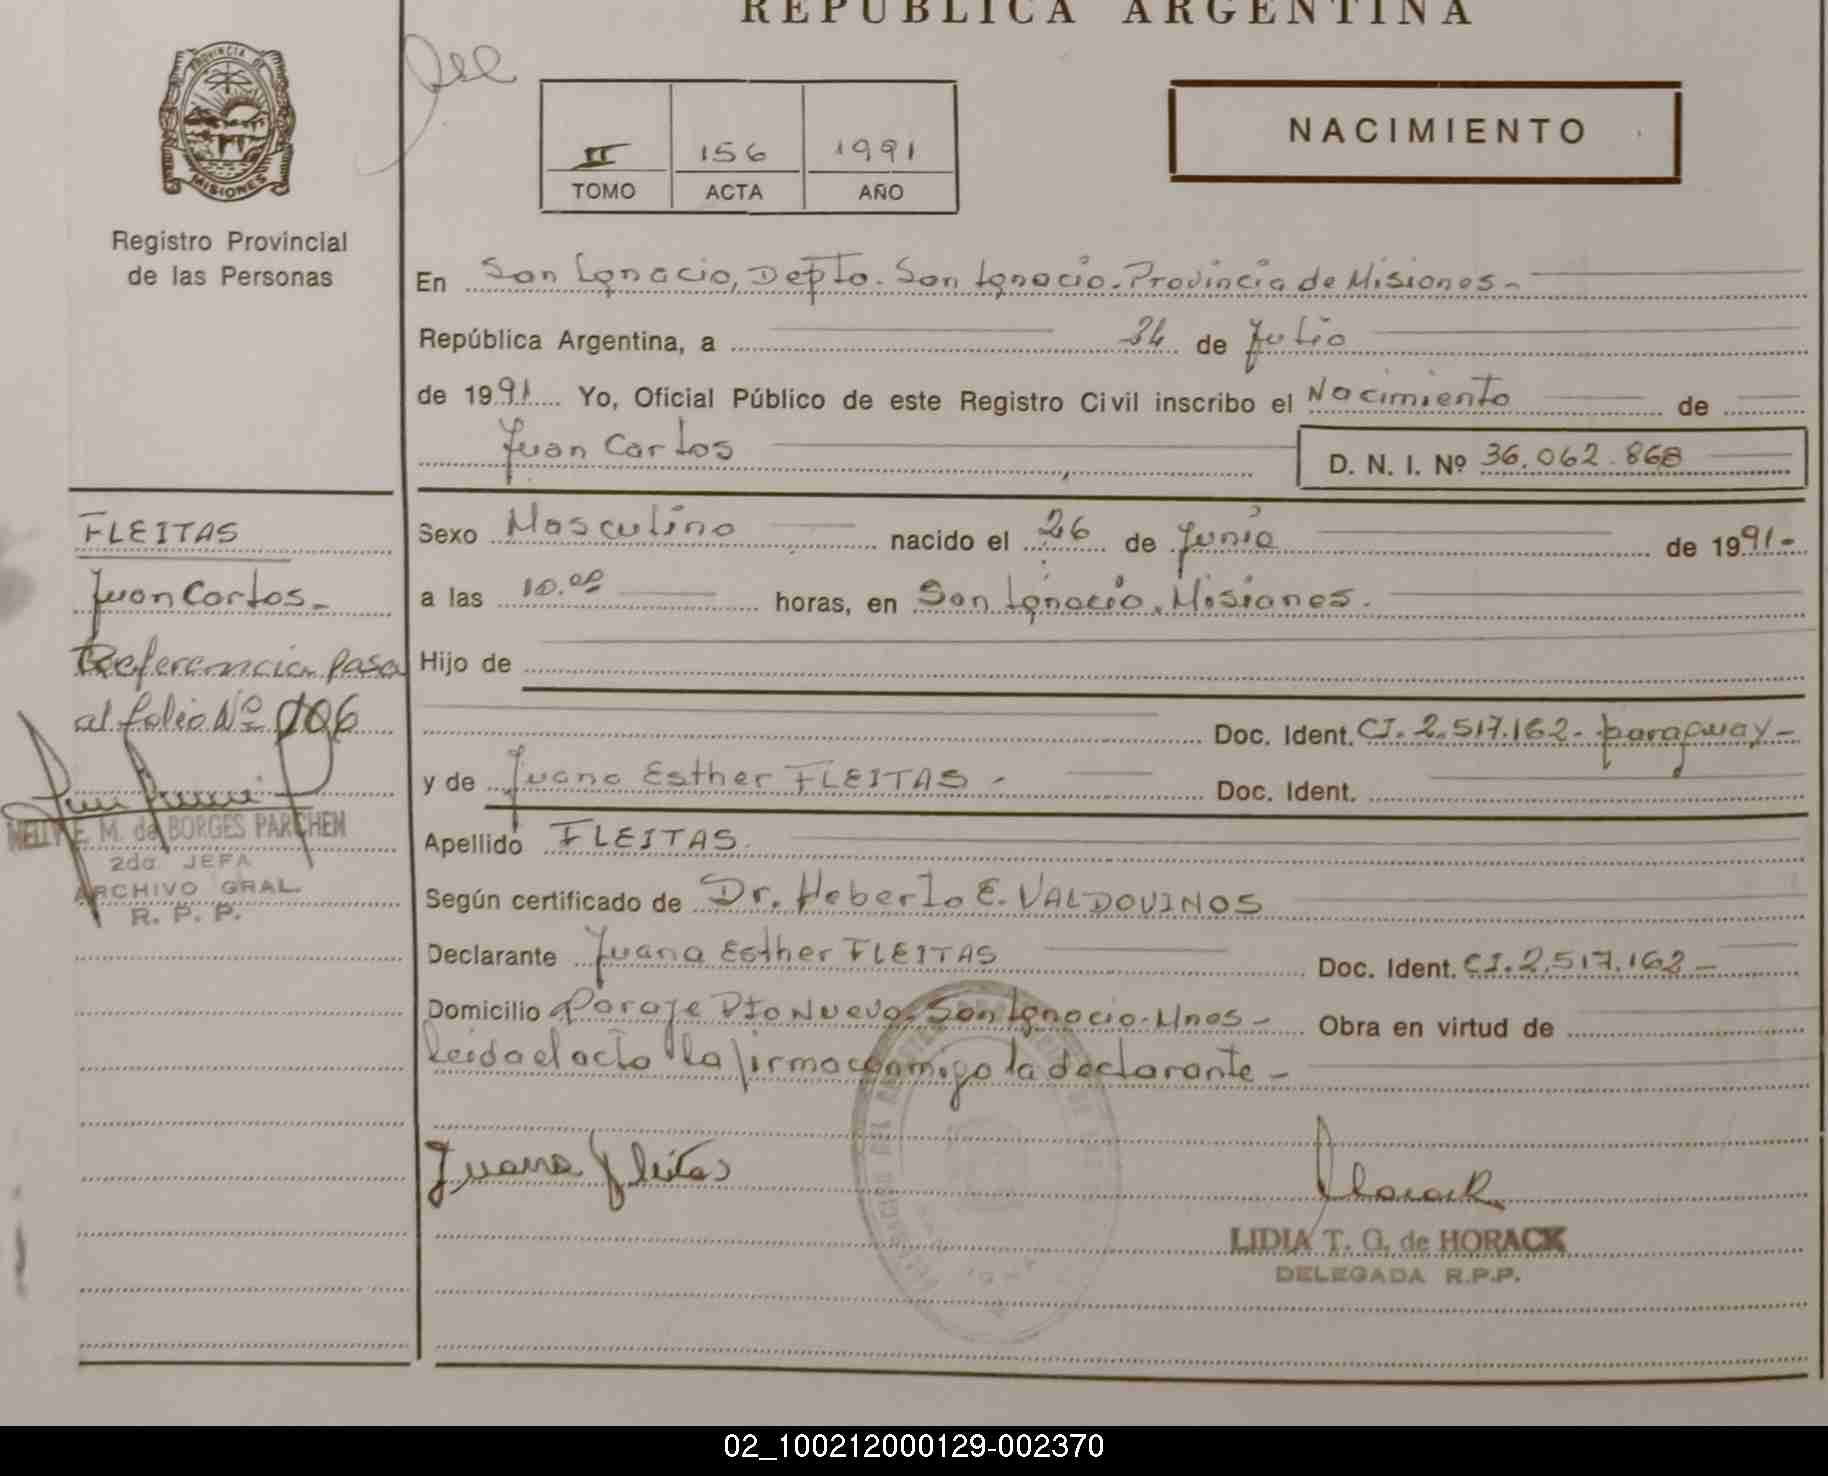 REPUBLICA ARGENTINA
PROVINCIA DE
MISIONES
Registro Provincial
de las Personas
II 156 1991
TOMO ACTA AÑO
NACIMIENTO
En San Ignacio, Depto. San Ignacio. Provincia de Misiones -
República Argentina, a 24 de Julio
de 1991 Yo, Oficial Público de este Registro Civil inscribo el Nacimiento de
Juan Carlos
D. N. I. Nº 36.062.868
Sexo Masculino nacido el 26 de Junio de 1991-
a las 10.00 horas, en San Ignacio, Misiones.
Hijo de
Doc. Ident. CI. 2.517.162- paraguay-
y de Juana Esther FLEITAS - Doc. Ident.
Apellido FLEITAS.
Según certificado de Dr. Heberto E. VALDOVINOS
Declarante Juana Esther FLEITAS Doc. Ident. CI. 2.517.162-
Domicilio Paraje Pto Nuevo. San Ignacio. Mnes - Obra en virtud de
Leida el acta la firma conmigo la declarante -
Juana Fleitas
Horack
LIDIA T. G. de HORACK
DELEGADA R.P.P.
FLEITAS
Juan Carlos-
Referencia pasa
al folio Nº 106
NELLY E. M. de BORGES PARCHEM
2da JEFA
ARCHIVO GRAL.
R. P. P.
02_100212000129-002370